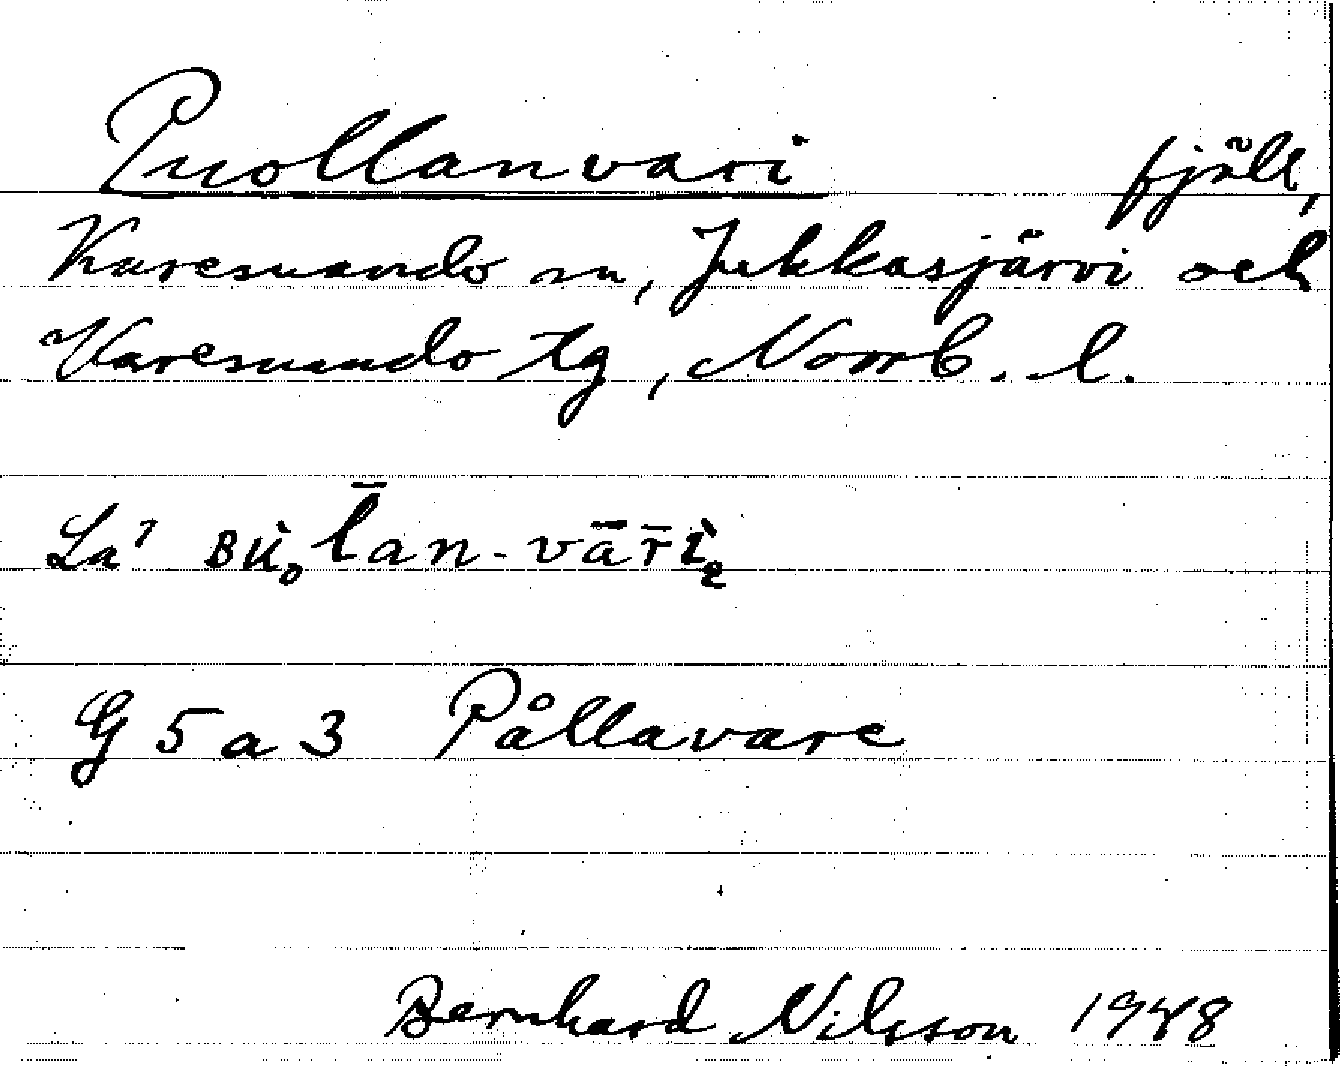 Puollanvari fjäll,
Karesuando sn, Jukkasjärvi och
Karesuando tg, Norrb. l.
La' ʙu̇ₒl̄an-vār̄i̇₂
G 5 a 3 Pållavare
Bernhard Nilsson 1948